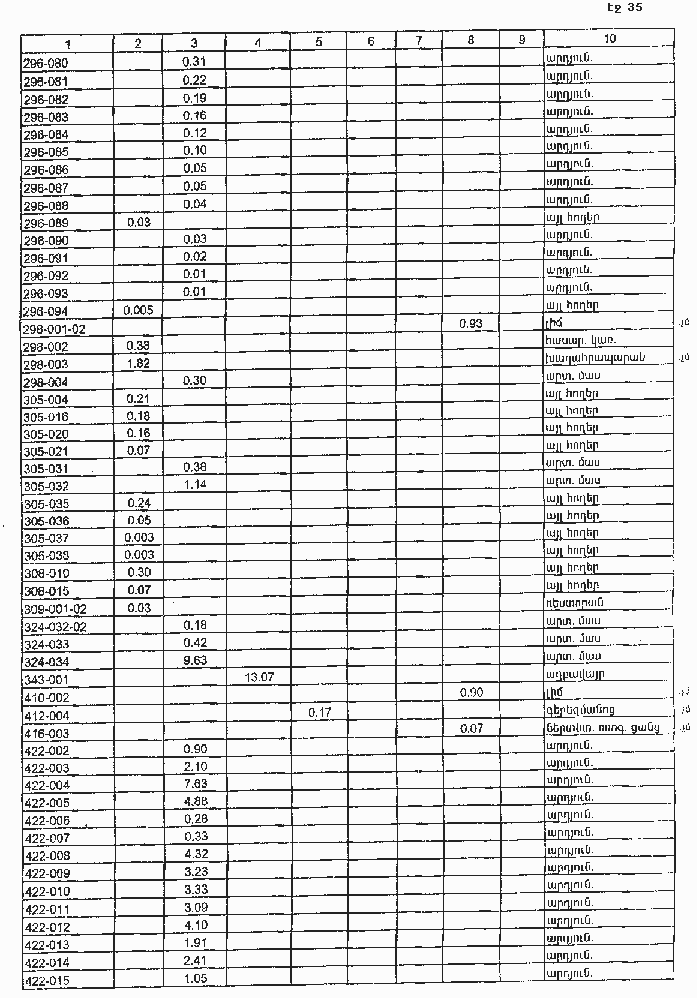 էջ 35
1 2 3 4 5 6 7 8 9 10
296-080 0.31 արդյուն.
296-081 0.22 արդյուն.
296-082 0.19 արդյուն.
296-083 0.16 արդյուն.
296-084 0.12 արդյուն.
296-085 0.10 արդյուն.
296-086 0.05 արդյուն.
296-087 0.05 արդյուն.
296-088 0.04 արդյուն.
296-089 0.03 այլ հողեր
296-090 0.03 արդյուն.
296-091 0.02 արդյուն.
296-092 0.01 արդյուն.
296-093 0.01 արդյուն.
296-094 0.005 այլ հողեր
298-001-02 0.93 լիճ
298-002 0.38 հասար. կառ.
298-003 1.82 խաղահրապարակ
298-004 0.30 արտ. մաս
305-004 0.21 այլ հողեր
305-016 0.18 այլ հողեր
305-020 0.16 այլ հողեր
305-021 0.07 այլ հողեր
305-031 0.38 արտ. մաս
305-032 1.14 արտ. մաս
305-035 0.24 այլ հողեր
305-036 0.05 այլ հողեր
305-037 0.003 այլ հողեր
305-039 0.003 այլ հողեր
308-010 0.30 այլ հողեր
308-015 0.07 այլ հողեր
309-001-02 0.03 ռեստորան
324-032-02 0.18 արտ. մաս
324-033 0.42 արտ. մաս
324-034 9.63 արտ. մաս
343-001 13.07 աղբավայր
410-002 0.90 լիճ
412-004 0.17 գերեզմանոց
416-003 0.07 ներտնտ. ոռոգ. ցանց
422-002 0.90 արդյուն.
422-003 2.10 արդյուն.
422-004 7.83 արդյուն.
422-005 4.88 արդյուն.
422-006 0.28 արդյուն.
422-007 0.33 արդյուն.
422-008 4.32 արդյուն.
422-009 3.23 արդյուն.
422-010 3.33 արդյուն.
422-011 3.09 արդյուն.
422-012 4.10 արդյուն.
422-013 1.91 արդյուն.
422-014 2.41 արդյուն.
422-015 1.05 արդյուն.